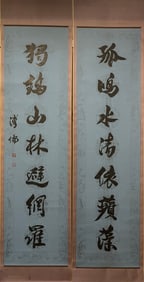 孤水渚依蘋藻
獨鶴山林避網羅
溥儒